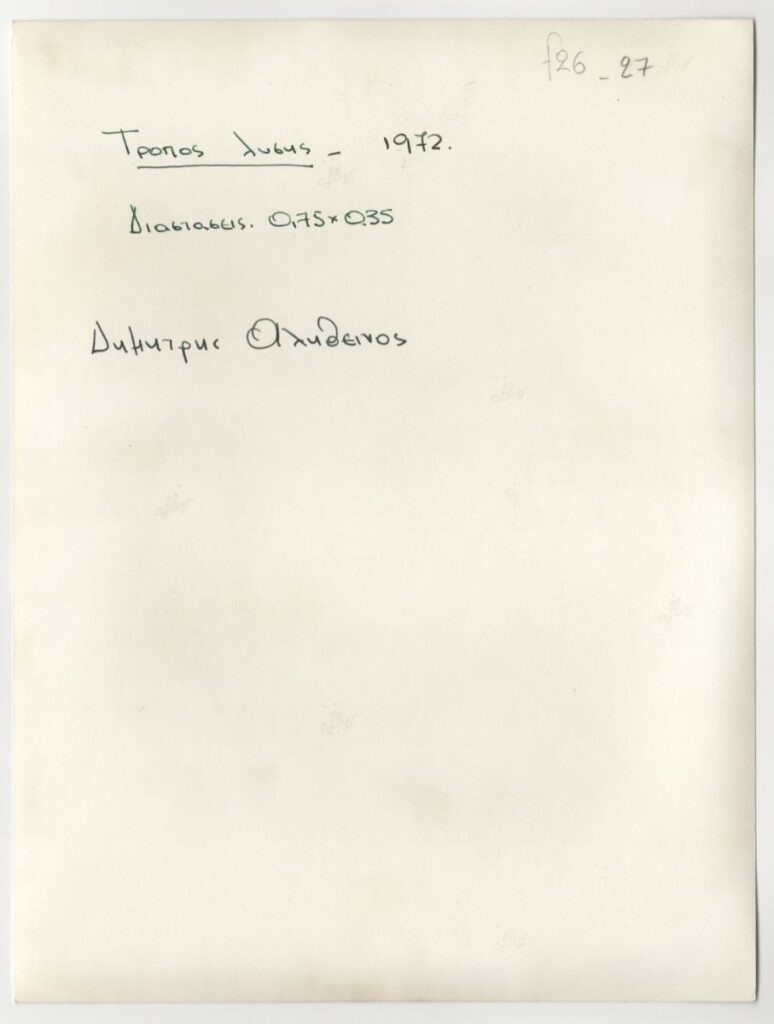 f26 - 27
Τροπος λυσης - 1972.
Διαστασεις. 0,75 × 0.35
Δημητρης Αληθεινος